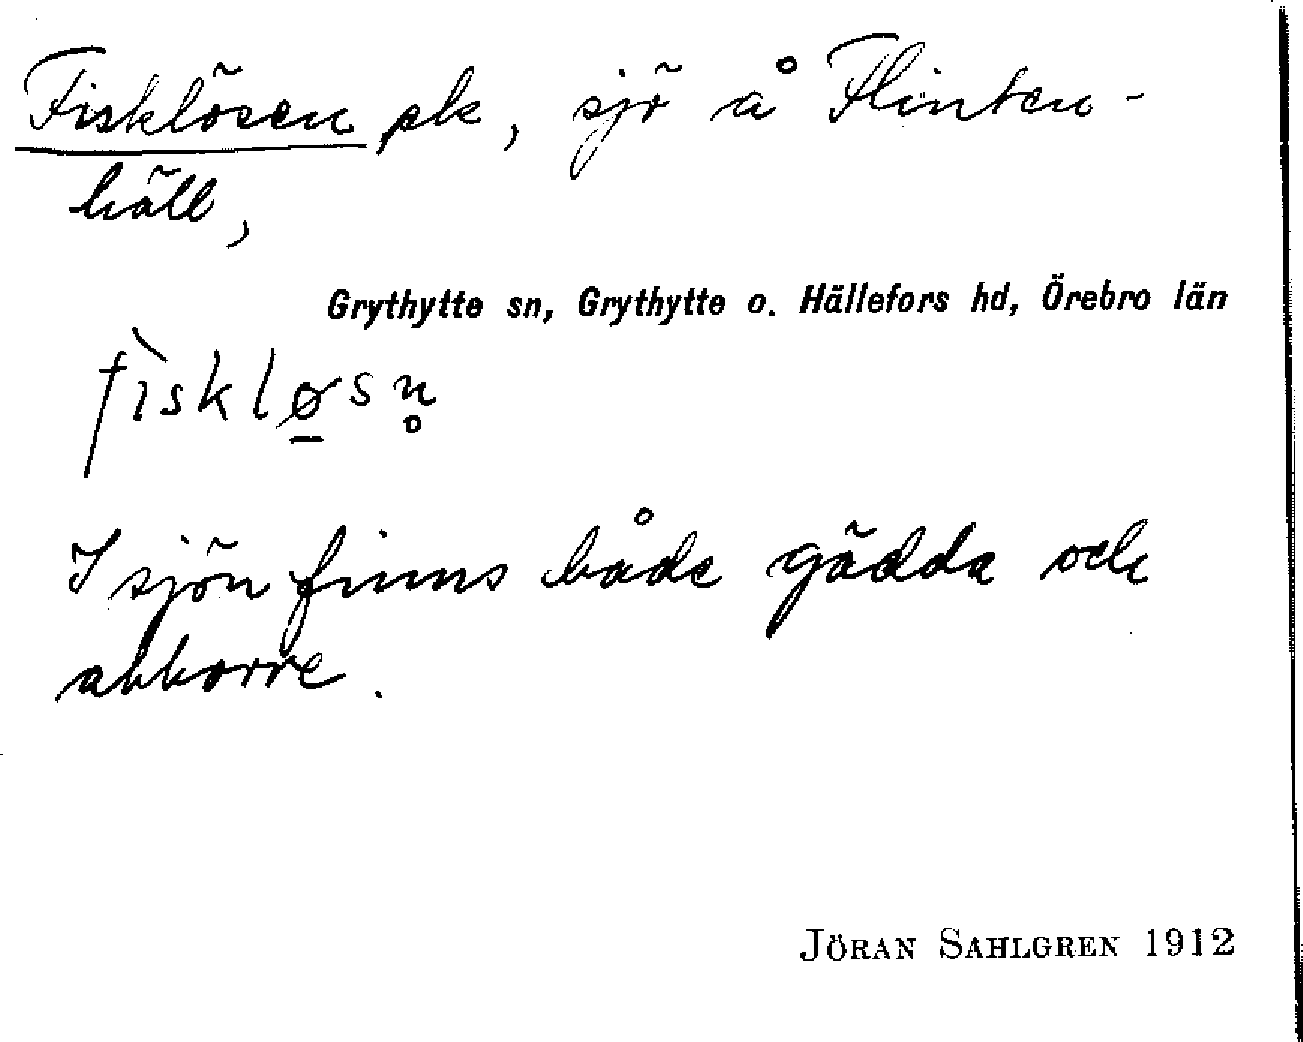 Fisklösen ek, sjö å Flinten-
häll,
Grythytte sn, Grythytte o. Hällefors hd, Örebro län
fìsklø̱sn̥
I sjön finns både gädda och
abborre.
JÖRAN SAHLGREN 1912